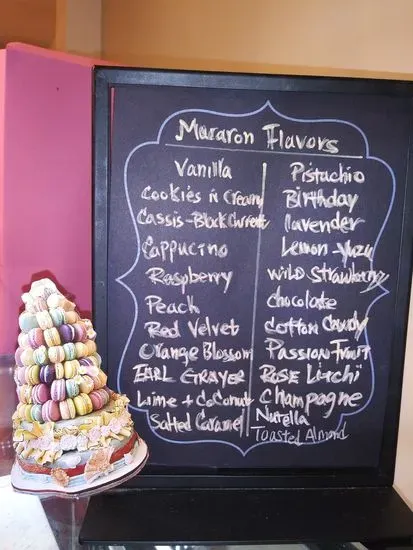 Mararon Flavors
Vanilla
Cookies n Cream
Cassis-Black Current
Cappucino
Raspberry
Peach
Red Velvet
Orange Blossom
EARL GRAYER
Lime + CoConut
Salted Caramel
Pistachio
Birthday
lavender
Lemon-Yuzu
WilD Strawberry
chocolate
Cotton Candy
Passion-Fruit
ROSE Litchi
Champagne
Nutella
Toasted Almond